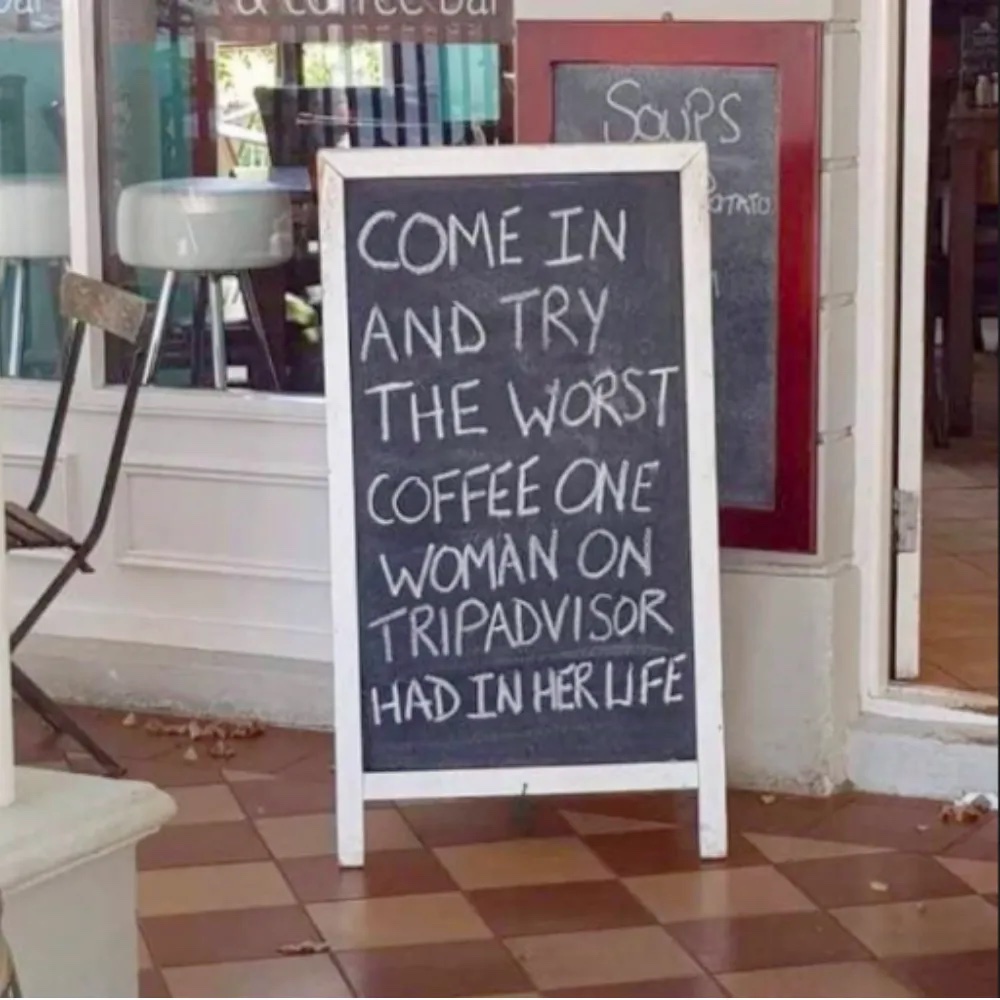 & coffee bar
SOUPS
POTATO
COME IN
AND TRY
THE WORST
COFFEE ONE
WOMAN ON
TRIPADVISOR
HAD IN HER LIFE